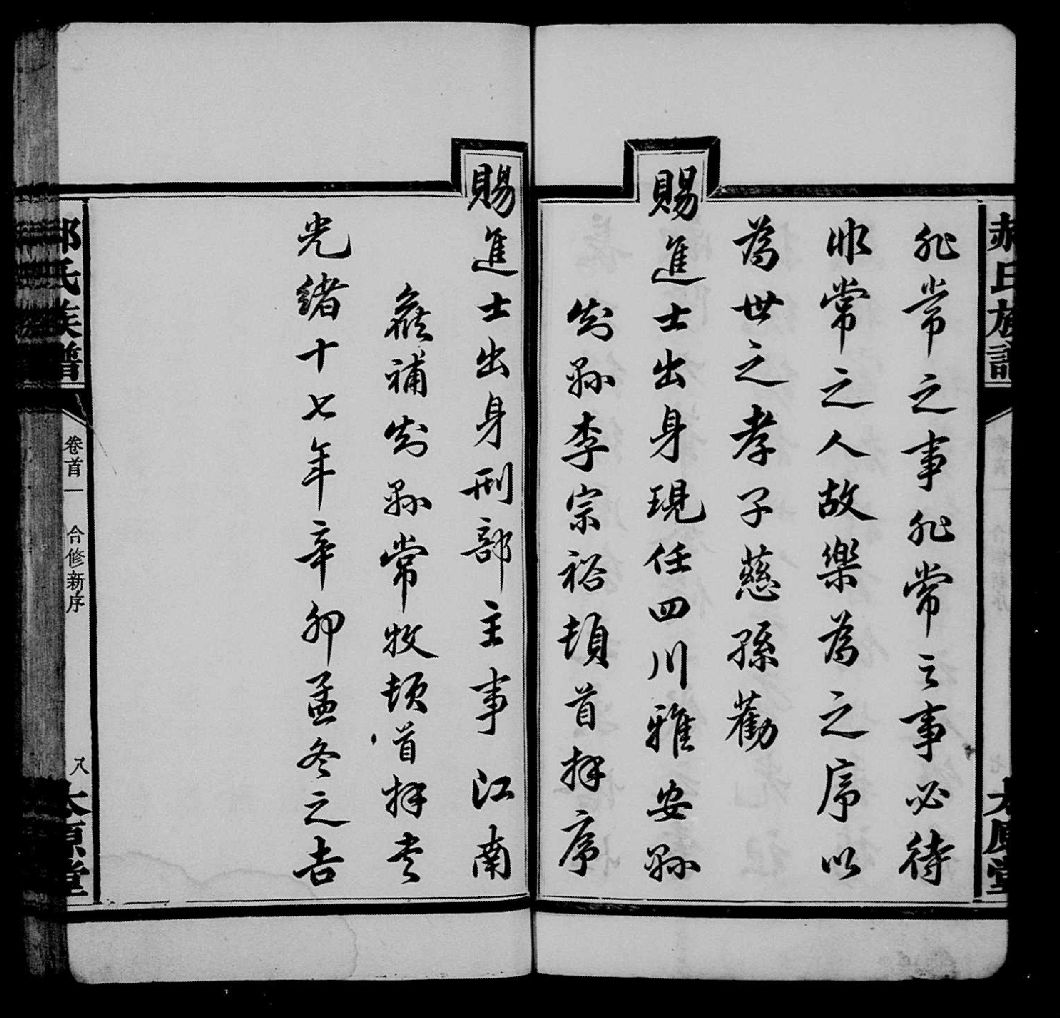 郝氏族譜
太原堂
非常之事非常之事必待
非常之人故樂為之序以
為世之孝子慈孫勸
賜進士出身現任四川雅安縣
知縣李宗裕頓首拜序
賜進士出身刑部主事江南
補知縣常牧頓首拜書
光緒十七年辛卯孟冬之吉
郝氏族譜
卷首一 合修新序
太原堂